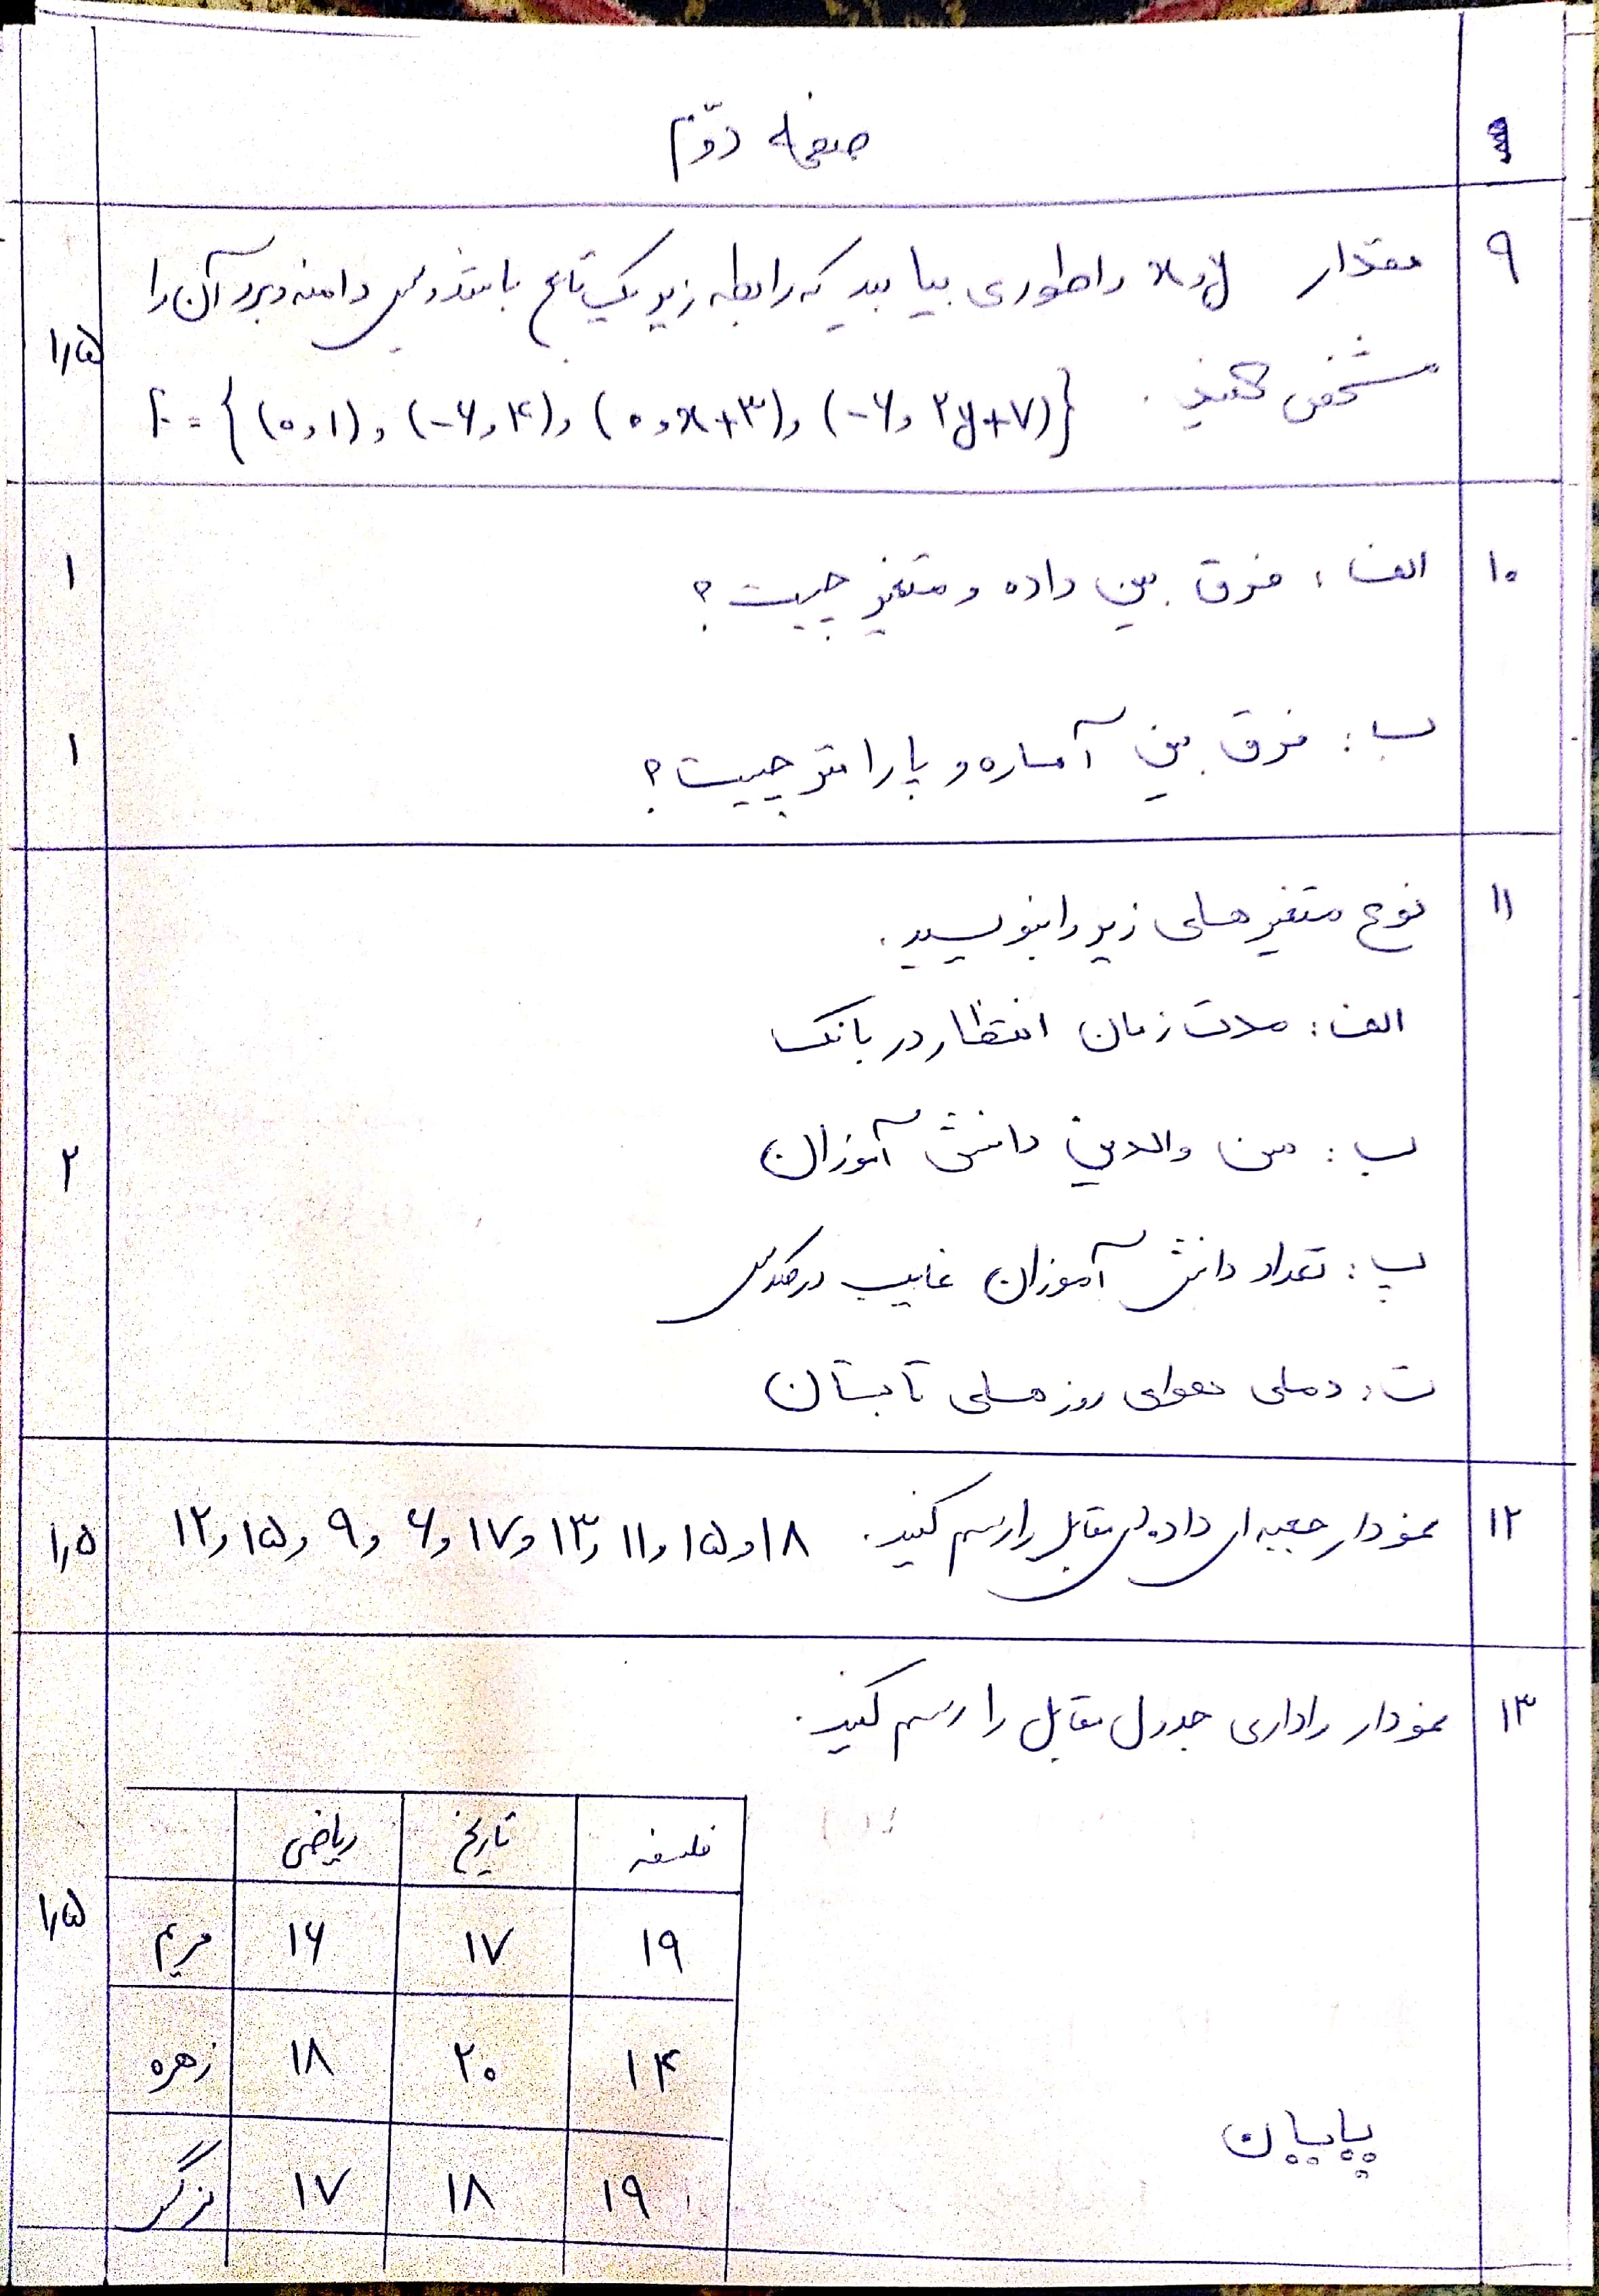 صفحه دوّم
۹ مقدار x و y را طوری بیابید که رابطه زیر یک تابع باشد و سپس دامنه و برد آن را
۱٫۵
مشخص کنید. f = {(۰,۱), (-۶,۴), (۰,x+۳), (-۶, ۲y+۷)}
۱۰ الف: فرق بین داده و متغیر چیست؟ ۱
ب: فرق بین آماره و پارامتر چیست؟ ۱
۱۱ نوع متغیرهای زیر را بنویسید.
الف: مدت زمان انتظار در بانک
ب: سن والدین دانش آموزان ۲
پ: تعداد دانش آموزان غایب در کلاس
ت: دمای هوای روزهای تابستان
۱۲ نمودار جعبه ای داده های مقابل را رسم کنید. ۱۲و۱۵و۹و۶و۱۷و۱۳و۱۱و۱۵و۱۸ ۱٫۵
۱۳ نمودار راداری جدول مقابل را رسم کنید.
ریاضی تاریخ فلسفه
۱٫۵ مریم ۱۶ ۱۷ ۱۹
زهره ۱۸ ۲۰ ۱۴
نرگس ۱۷ ۱۸ ۱۹
پایان